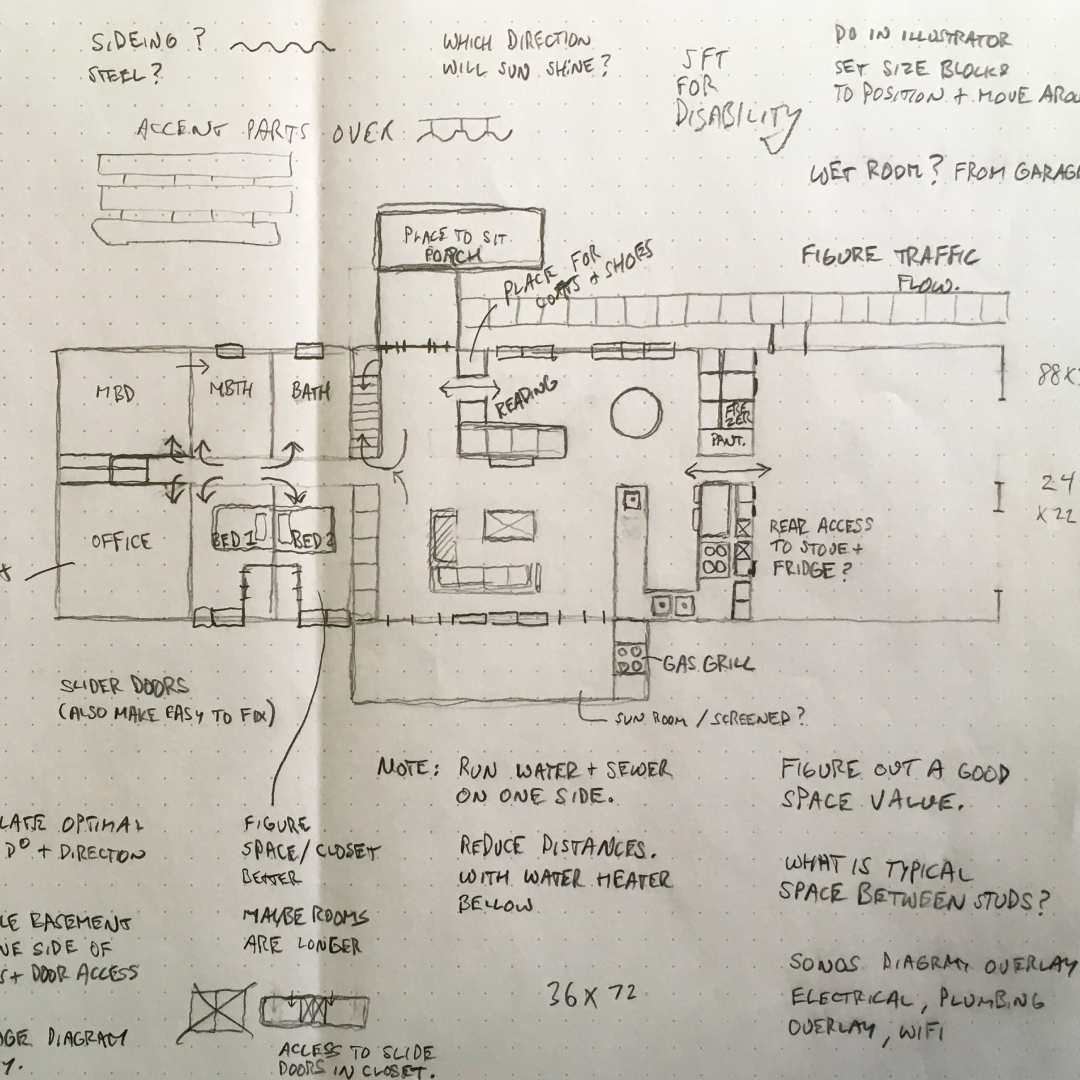 SIDEING ?
STEEL ?
WHICH DIRECTION
WILL SUN SHINE ?
5FT
FOR
DISABILITY
DO IN ILLUSTRATOR
SET SIZE BLOCKS
TO POSITION + MOVE AROU
ACCENT PARTS OVER
WET ROOM ? FROM GARAGE
PLACE TO SIT
PORCH
PLACE FOR
COATS + SHOES
FIGURE TRAFFIC
FLOW.
MBD
MBTH
BATH
READING
FRE
EZER
PANT.
88X
24
X22
OFFICE
BED 1
BED 2
REAR ACCESS
TO STOVE +
FRIDGE ?
GAS GRILL
SLIDER DOORS
(ALSO MAKE EASY TO FIX)
SUN ROOM / SCREENED ?
NOTE: RUN WATER + SEWER
ON ONE SIDE.
FIGURE OUT A GOOD
SPACE VALUE.
LATE OPTIMAL
D° + DIRECTON
FIGURE
SPACE/CLOSET
BETTER
REDUCE DISTANCES.
WITH WATER HEATER
BELLOW
WHAT IS TYPICAL
SPACE BETWEEN STUDS ?
LE BASEMENT
NE SIDE OF
S + DOOR ACCESS
MAYBE ROOMS
ARE LONGER
36 X 72
SONOS DIAGRAM OVERLAY
ELECTRICAL, PLUMBING
OVERLAY, WIFI
DGE DIAGRAM
Y.
ACCESS TO SLIDE
DOORS IN CLOSET.